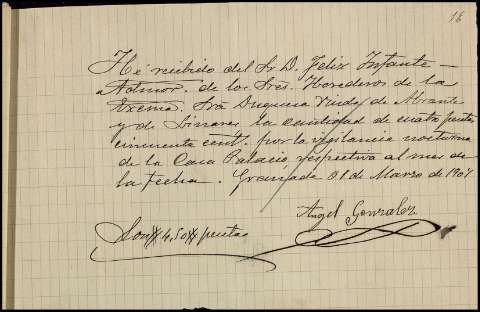 16
He recibido del Sr D. Felix Infante –
Admor. de los Sres. Herederos de la
Excma. Sra Duquesa Viuda de Abrante
y de Linares la cantidad de cuatro pesetas
cincuenta cent. por la vigilancia nocturna
de la Casa Palacio, respectiva al mes de
la fecha. Granada 31 de Marzo de 1907
Angel Gonzalez
Son # 4,50 # pesetas